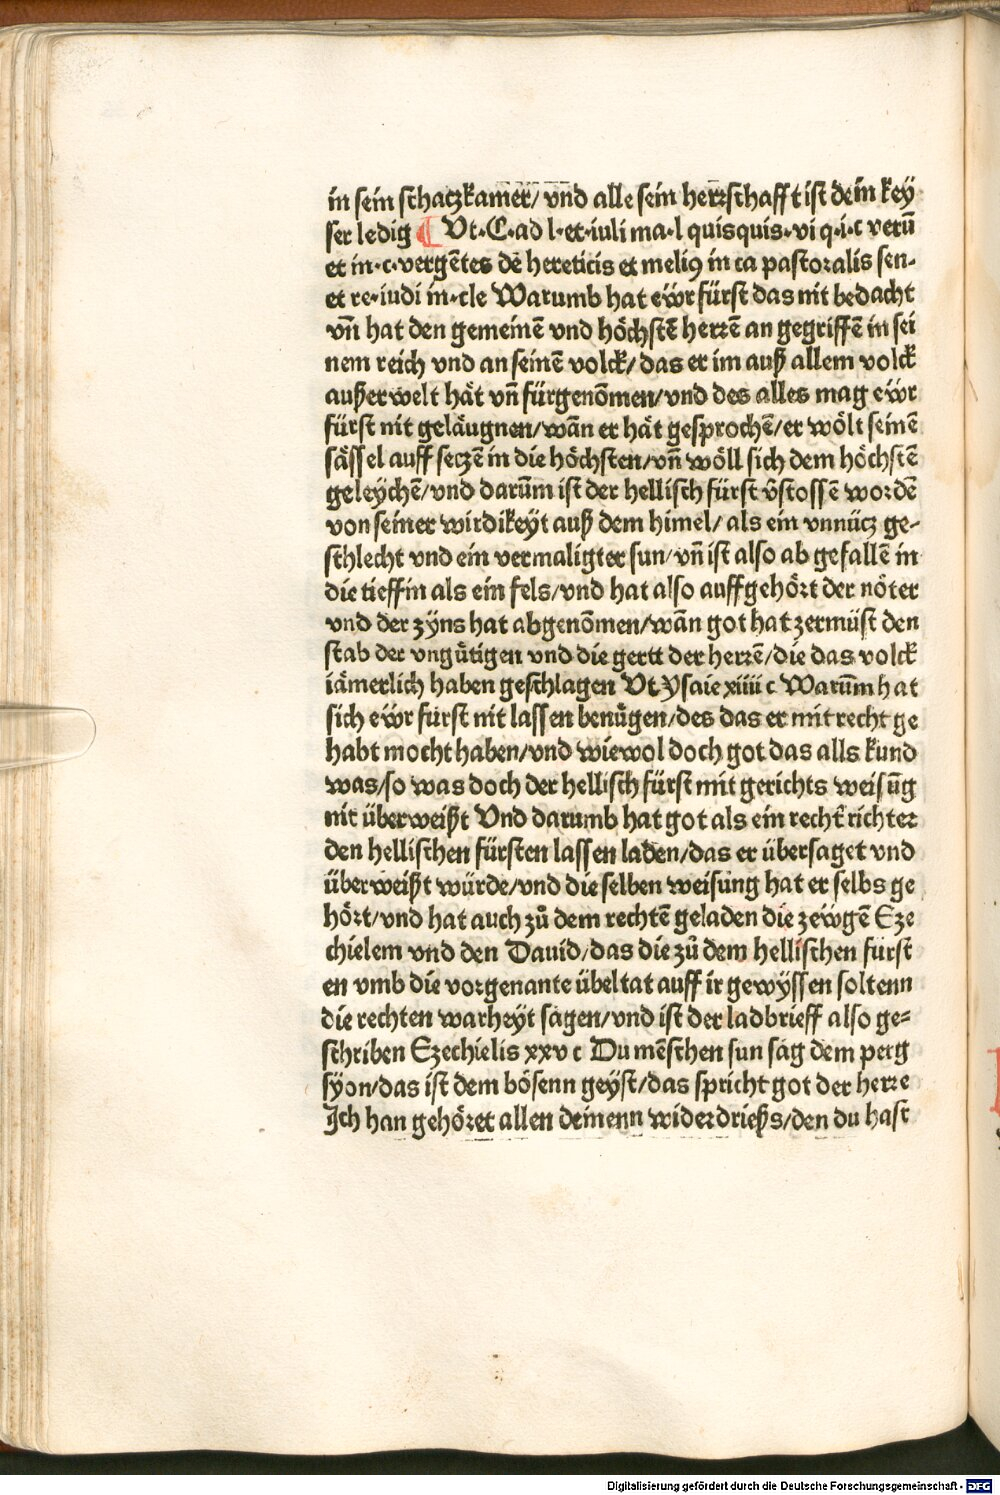 in sein schaczkamer/ vnd alle sein herrschafft ist dein key
ser ledig ¶ Vt·C·ad l·et·iuli ma·l quisquis·vi q·i·c verū
et in·c·vergētes dē hereticis et meliꝰ in ca pastoralis sen·
et re·iudi in·cle Warumb hat ewr fürst das nit bedacht
vn̄ hat den gemeinē vnd höchstē herrē an gegriffē in sei
nem reich vnd an seinē volck/ das er im auß allem volck
außerwelt hät vn̄ fürgenōmen/vnd des alles mag ewr
fürst nit geläugnen/wān er hät gesprochē/er wölt seinē
sässel auff seczē in die höchsten/vn̄ wöll sich dem höchstē
geleychē/vnd darūm ist der hellisch fürst v̄stossē wordē
von seiner wirdikeyt auß dem himel/ als ein vnnücz ge-
schlecht vnd ein vermaligter sun/vn̄ ist also ab gefallē in
die tieffin als ein fels/vnd hat also auffgehört der nöter
vnd der zÿns hat abgenōmen/wān got hat zermüst den
stab der vngůtigen vnd die gertt der herrē/die das volck
iämerlich haben geschlagen Vt ysaie xiiii c Warūm hat
sich ewr fürst nit lassen benůgen/des das er mit recht ge
habt mocht haben/vnd wiewol doch got das alls kund
was/so was doch der hellisch fürst mit gerichts weisūg
nit überweißt Vnd darumb hat got als ein recht̄ richter
den hellischen fürsten lassen laden/das er übersaget vnd
überweißt würde/vnd die selben weisung hat er selbs ge
hört/vnd hat auch zů dem rechtē geladen die zewgē Eze
chielem vnd den Dauid/das die zů dem hellischen fürst
en vmb die vorgenante übeltat auff ir gewÿssen soltenn
die rechten warheyt sagen/vnd ist der ladbrieff also ge-
schriben Ezechielis xxv c Du mēschen sun sag dem perg
sÿon/das ist dem bösenn geÿst/das spricht got der herre
Ich han gehöret allen deinenn widerdrieß/den du hast
Digitalisierung gefördert durch die Deutsche Forschungsgemeinschaft - DFG